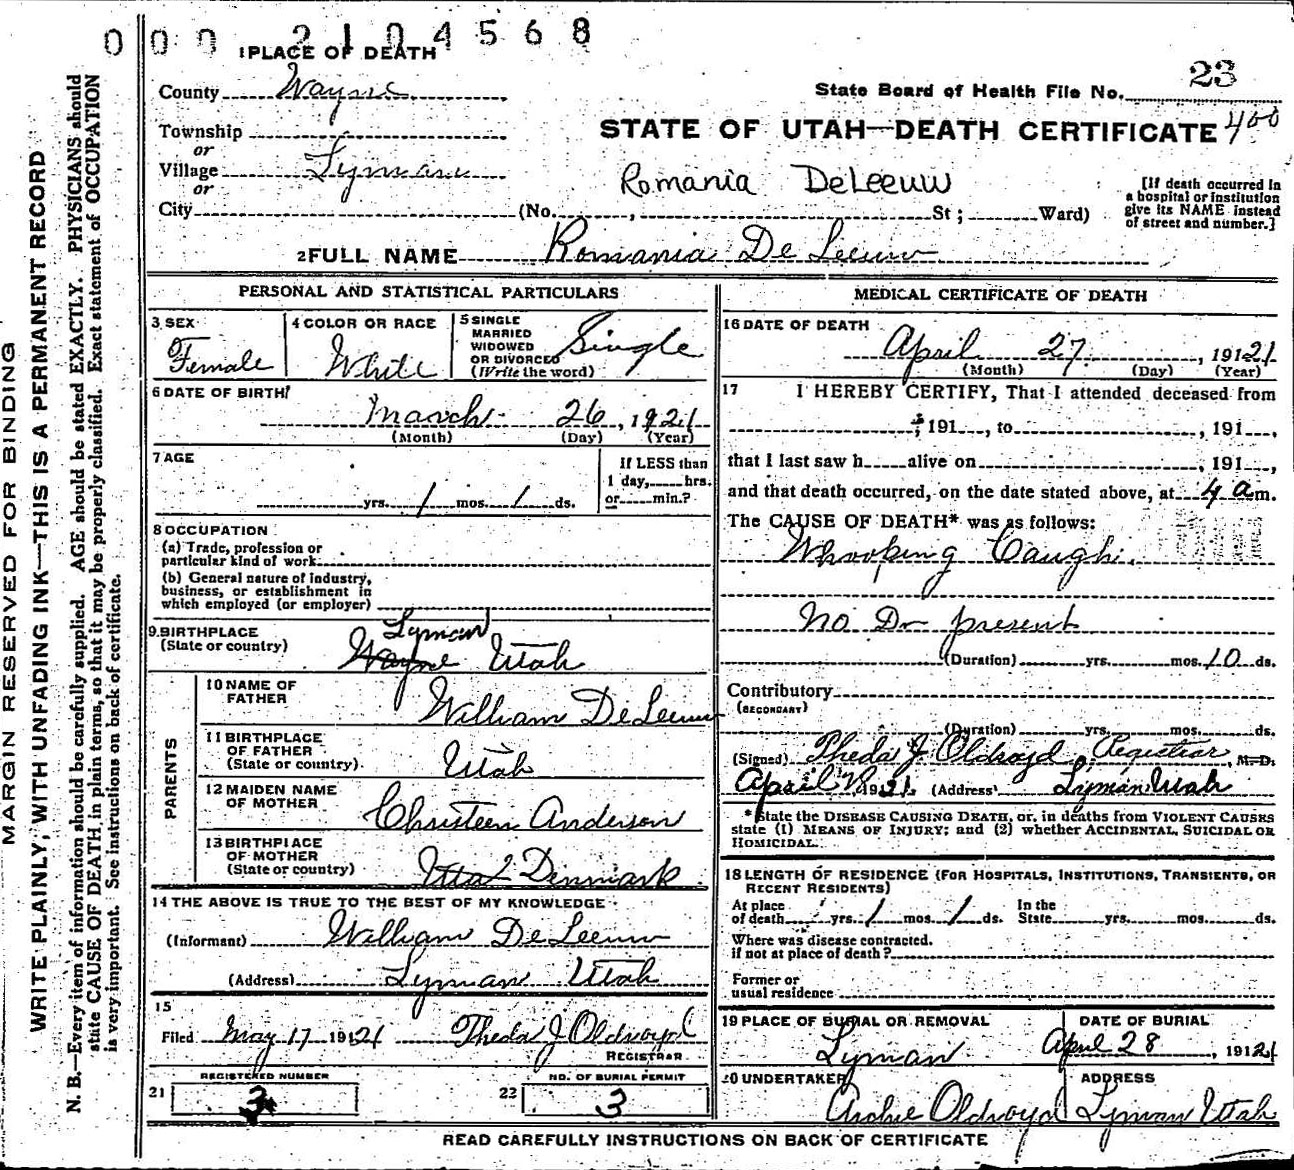 0 0 0 2 1 0 4 5 6 8
1 PLACE OF DEATH
County Wayne
State Board of Health File No. 23
Township
STATE OF UTAH—DEATH CERTIFICATE 400
or
Village Lyman
or
Romania DeLeeuw
[If death occurred in
a hospital or institution
give its NAME instead
of street and number.]
City (No. , St ; Ward)
2 FULL NAME Romania De Leeuw
PERSONAL AND STATISTICAL PARTICULARS
3 SEX
Female
4 COLOR OR RACE
White
5 SINGLE
MARRIED
WIDOWED
OR DIVORCED
(Write the word)
Single
6 DATE OF BIRTH
March 26, 1921
(Month) (Day) (Year)
7 AGE
yrs. 1 mos. 1 ds.
If LESS than
1 day, hrs.
or min.?
8 OCCUPATION
(a) Trade, profession or
particular kind of work
(b) General nature of industry,
business, or establishment in
which employed (or employer)
9 BIRTHPLACE
(State or country)
Lyman
Wayne Utah
PARENTS
10 NAME OF
FATHER
William De Leeuw
11 BIRTHPLACE
OF FATHER
(State or country)
Utah
12 MAIDEN NAME
OF MOTHER
Christeen Anderson
13 BIRTHPLACE
OF MOTHER
(State or country)
Dinmark
14 THE ABOVE IS TRUE TO THE BEST OF MY KNOWLEDGE
(Informant) William De Leeuw
(Address) Lyman Utah
15
Filed May 17 1921 Theda J Oldroyd
REGISTRAR
REGISTERED NUMBER
21 3
NO. OF BURIAL PERMIT
22 3
MEDICAL CERTIFICATE OF DEATH
16 DATE OF DEATH
April 27, 19121
(Month) (Day) (Year)
17 I HEREBY CERTIFY, That I attended deceased from
, 191 , to , 191 ,
that I last saw h alive on , 191 ,
and that death occurred, on the date stated above, at 4 a m.
The CAUSE OF DEATH* was as follows:
Whooping Caugh.
No Dr present
(Duration) yrs. mos. 10 ds.
Contributory
(SECONDARY)
(Duration) yrs. mos. ds.
(Signed) Theda J Oldroyd Registrar, M. D.
April 1921. (Address) Lyman Utah
*State the DISEASE CAUSING DEATH, or, in deaths from VIOLENT CAUSES
state (1) MEANS OF INJURY; and (2) whether ACCIDENTAL, SUICIDAL OR
HOMICIDAL.
18 LENGTH OF RESIDENCE (FOR HOSPITALS, INSTITUTIONS, TRANSIENTS, OR
RECENT RESIDENTS)
At place
of death yrs. 1 mos. 1 ds.
In the
State yrs. mos. ds.
Where was disease contracted.
if not at place of death?
Former or
usual residence
19 PLACE OF BURIAL OR REMOVAL
Lyman
DATE OF BURIAL
April 28, 19121
20 UNDERTAKER
Archie Oldroyd
ADDRESS
Lyman Utah
READ CAREFULLY INSTRUCTIONS ON BACK OF CERTIFICATE
MARGIN RESERVED FOR BINDING
WRITE PLAINLY, WITH UNFADING INK—THIS IS A PERMANENT RECORD
N. B.—Every item of information should be carefully supplied. AGE should be stated EXACTLY. PHYSICIANS should
state CAUSE OF DEATH in plain terms, so that it may be properly classified. Exact statement of OCCUPATION
is very important. See instructions on back of certificate.